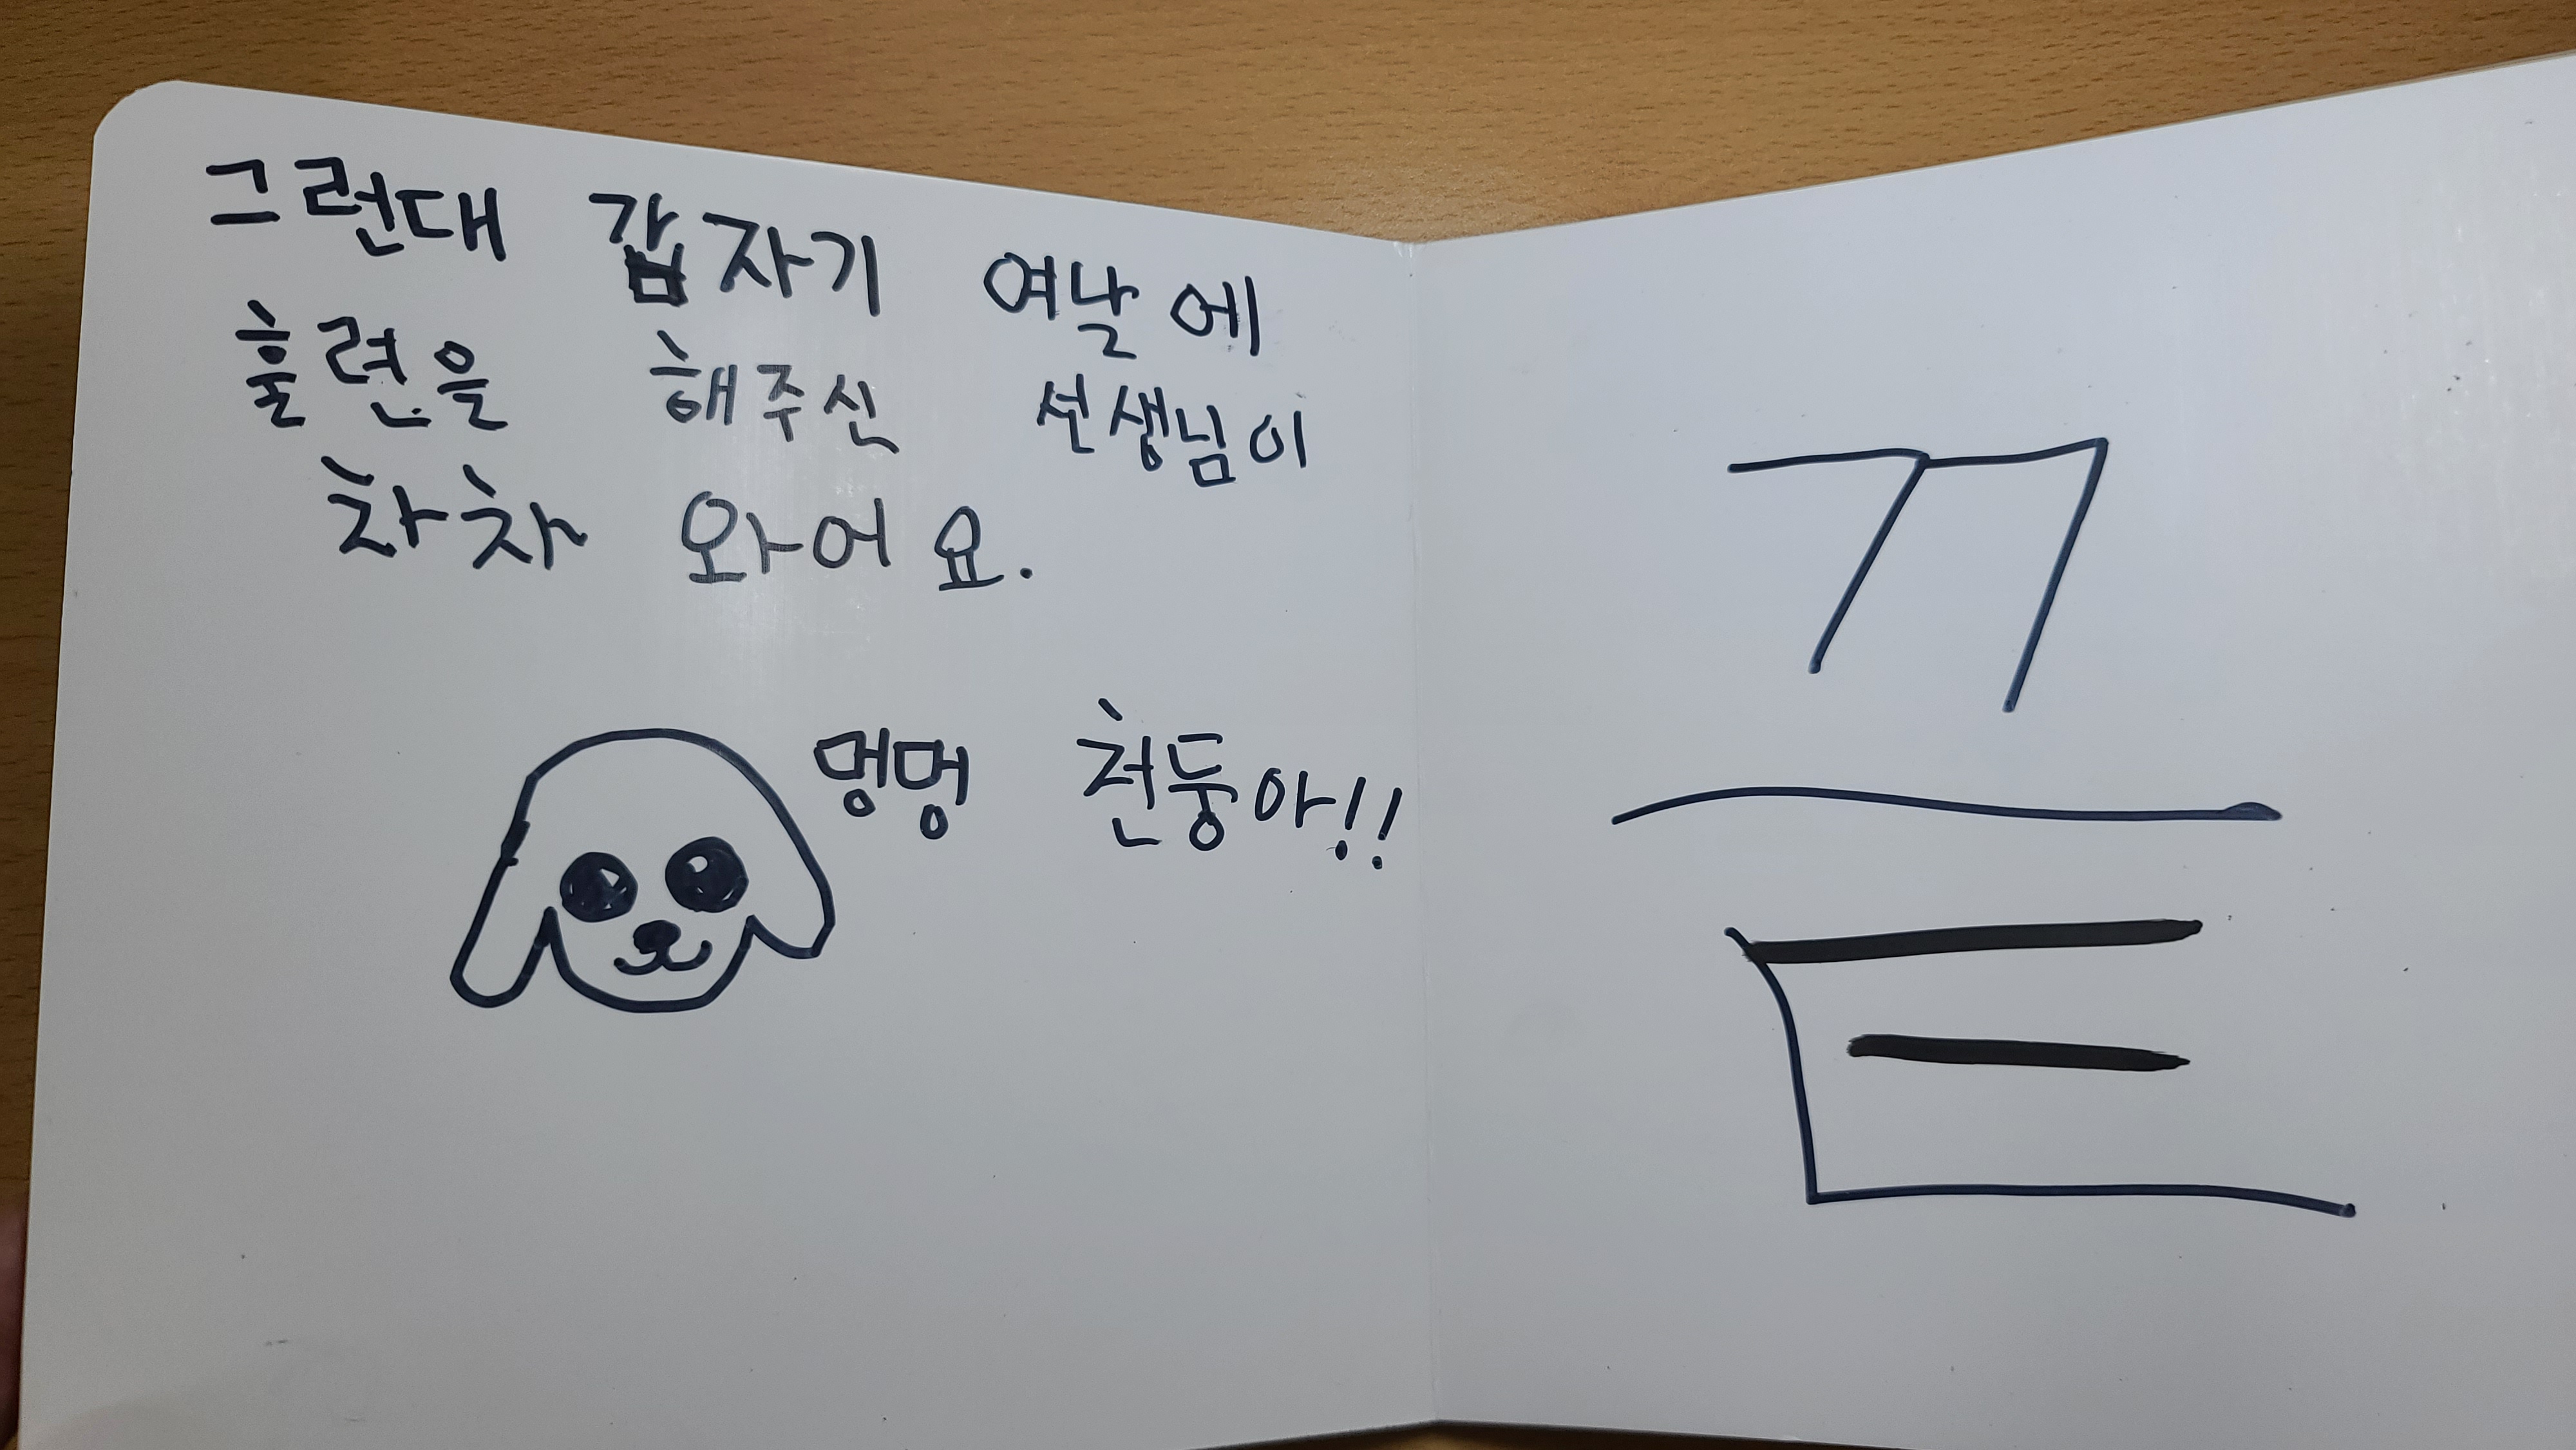 그런대 갑자기 여날에
훈련을 해주신 선생님이
차차 와어요.
멍멍 천둥아!!
끝